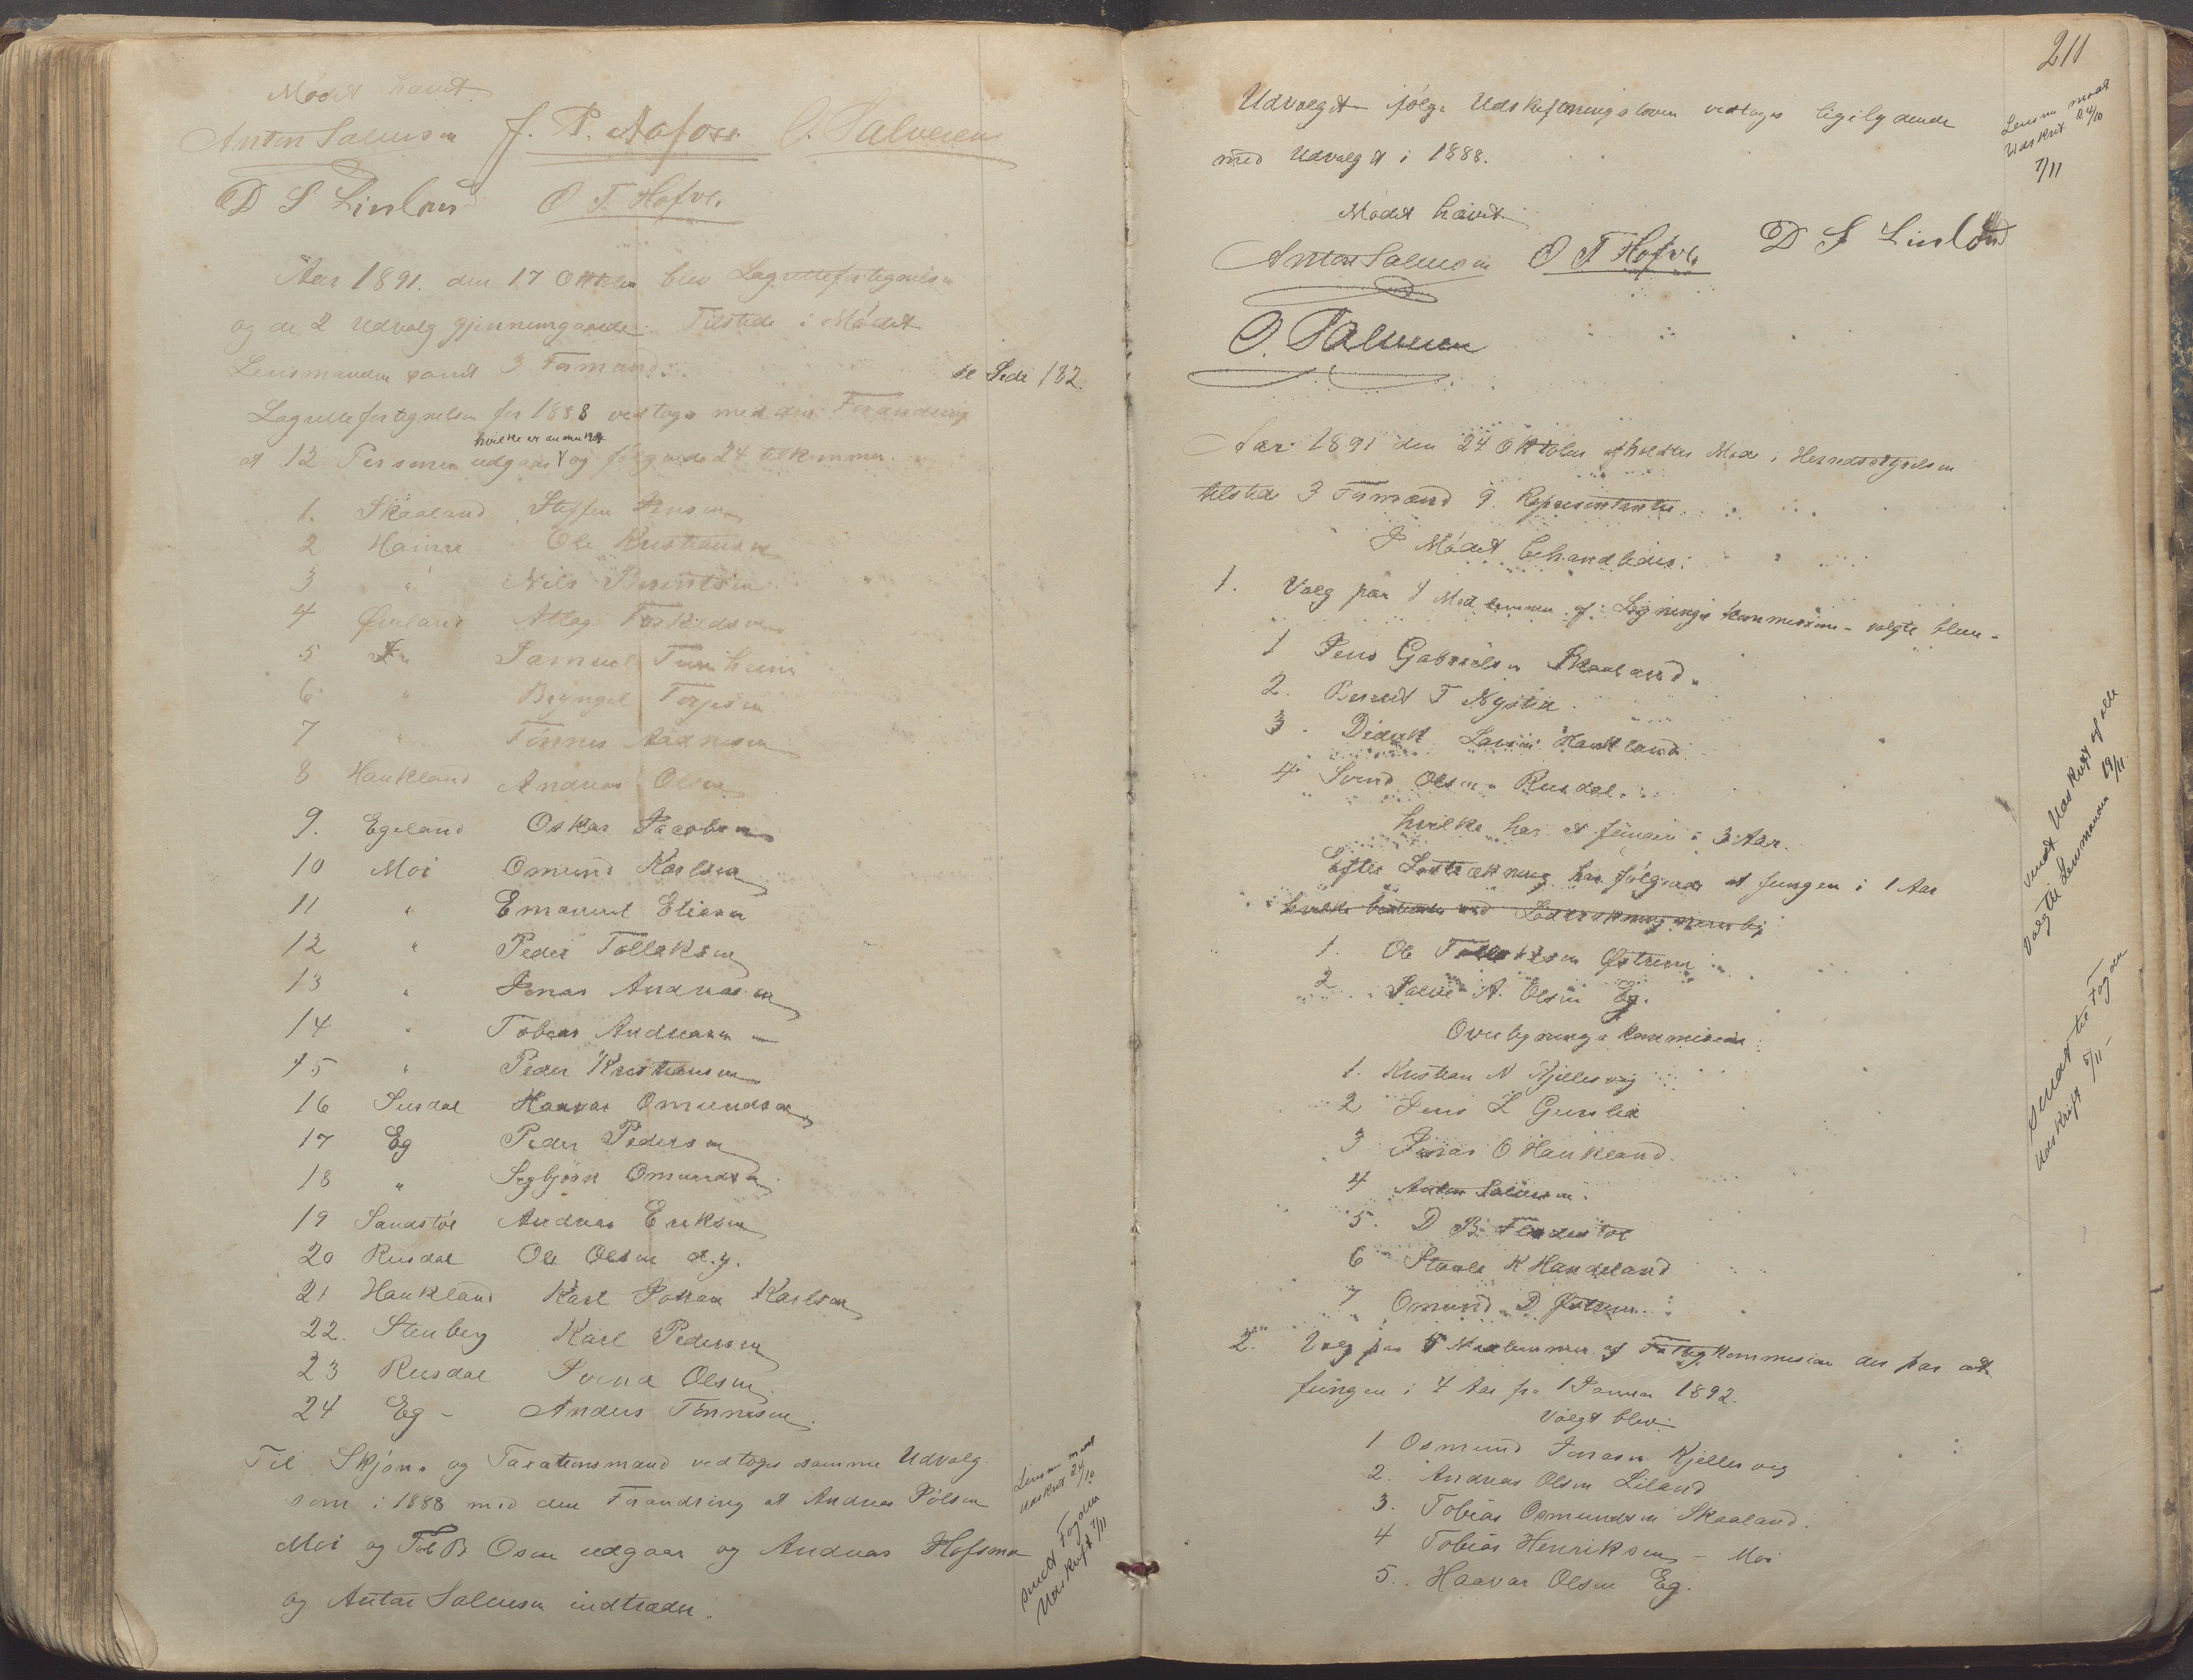 Mødet hævet
Anton Salvesen J. P. Aafoss O. Salvesen
D S Linland O T. Hofve.
Aar 1891. den 17 Oktober blev Lagrettefortegnelsen
og de 2 Udvalg gjennemgaaede. Tilstede i Mødet
Lensmanden samt 3 Formænd.
se Side 182.
Lagrettefortegnelsen for 1888 vedtoges med den Forandring
hvilke er anmærket
at 12 Personer udgaar og følgende 24 tilkommer.
1. Skaaland Steffen Jensen
2 Haave Ole Kristiansen
3 " Nils Berentsen
4 Øverland Atlag Torkildsen
5 " Samuel
6 " Bryngel Torjesen
7 " Tønnes Aadnesen
8 Haukland Andreas Olsen
9. Egeland Oskar Jacobsen
10 Moi Omund Karlsen
11 " Emanuel Eliasen
12 " Peder Tollaksen
13 " Jonas Andreasen
14 " Tobias Andreasen
15 " Peder Kristiansen
16 Surdal Haavar Omundsen
17 Eg Peder Pedersen
18 " Sigbjørn Omundsen
19 Sandstøl Andreas Eriksen
20 Rusdal Ole Olsen d.y.
21 Haukland Karl Johan Karlsen
22. Stenberg Karl Pedersen
23 Rusdal Svend Olsen
24 Eg - Anders Tønnesen.
Til Skjøns og Taxationsmænd vedtoges samme Udvalg
som i 1888 med den Forandring at Andreas Pølsen
Moi og Tob B Osen udgaar og Andreas Hofsmo
og Anton Salvesen indtræder.
Lensm meddt
Udskrift 24/10
sendt Fogden
Udskrift 7/11
211
Udvalget ifølge Udskiftningsloven vedtoges ligelydende
med Udvalget i 1888.
Lensm meddt
Udskrift 24/10
7/11
Mødet hævet.
Anton Salvesen O T Hofve. D S Linland
O. Salvesen
Aar 1891 den 24 Oktober afholdtes Møde i Herredsstyrelsen
tilstede 3 Formænd 9 Repræsentanter.
I Mødet behandledes:
1. Valg paa 4 Medlemmer af Ligningskommissionen - valgte blev -
1 Jens Gabrielsen Skaaland.
2. Berent T Nysted.
3. Didrik Larsen Haukland.
4. Svend Olsen Rusdal.
hvilke har at fungere i 3 Aar.
Efter Lodtrækning har følgende at fungere i 1 Aar
1. Ole Tollaksen Østrem
2 Salve A. Olsen Eg.
Overligningskommission
1. Kristian N Kjellesvig
2 Jens L Gursled
3 Jonas O Haukland.
4 Anton Salvesen.
5. D B Fladestøl
6 Staale K Handeland
7 Omund D Østrem.
2. Valg paa 5 Medlemmer af Fattigkommission der har at
fungere i 4 Aar fra 1 Januar 1892.
Valgt blev:
1 Osmund Jonasen Kjellesvig
2. Andreas Olsen Liland
3. Tobias Osmundsen Skaaland.
4 Tobias Henriksen - Moi
5. Haavar Olsen Eg.
sendt Udskrift af alle
valgte Lensmanden 19/11
sendt til Fogden
Udskrift 5/11